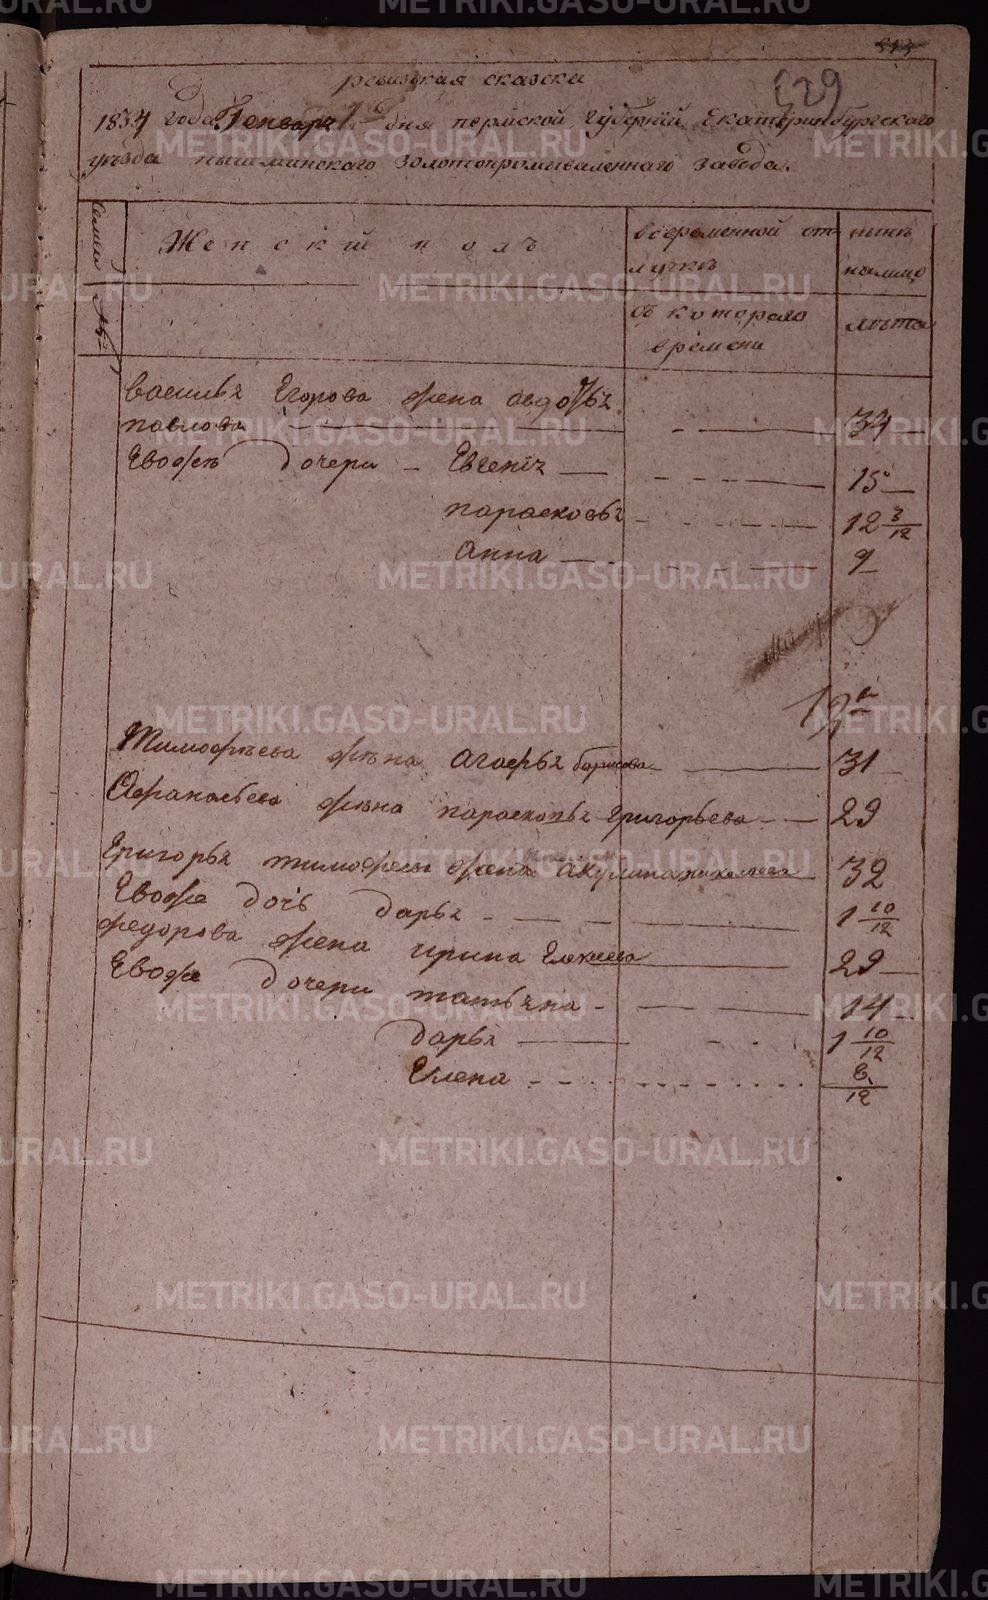 329
ревизская сказка
1834 года Генваря дня пермской губернии Екатеринбургского
уезда пышминскаго золотопромываленнаго завода.
Семьи №
Женский полъ
во временной от
лучкѣ
нынѣ
налицо
съ котораго
времени
лѣта
василья Егорова жена авдотья
павлова 34
Евожъ дочери Евгенія 15
парасковья 12 3/12
анна 9
Тимофѣева жѣна агафья борисова 31
Афанасьева жѣна парасковья григорьева 29
Григорья тимофеева жена акулина 32
Евоже дочь дарья 1 10/12
федорова жена ирина Елексеева 29
Евоже дочери татьяна 14
дарья 1 10/12
Елена 8/12
METRIKI.GASO-URAL.RU